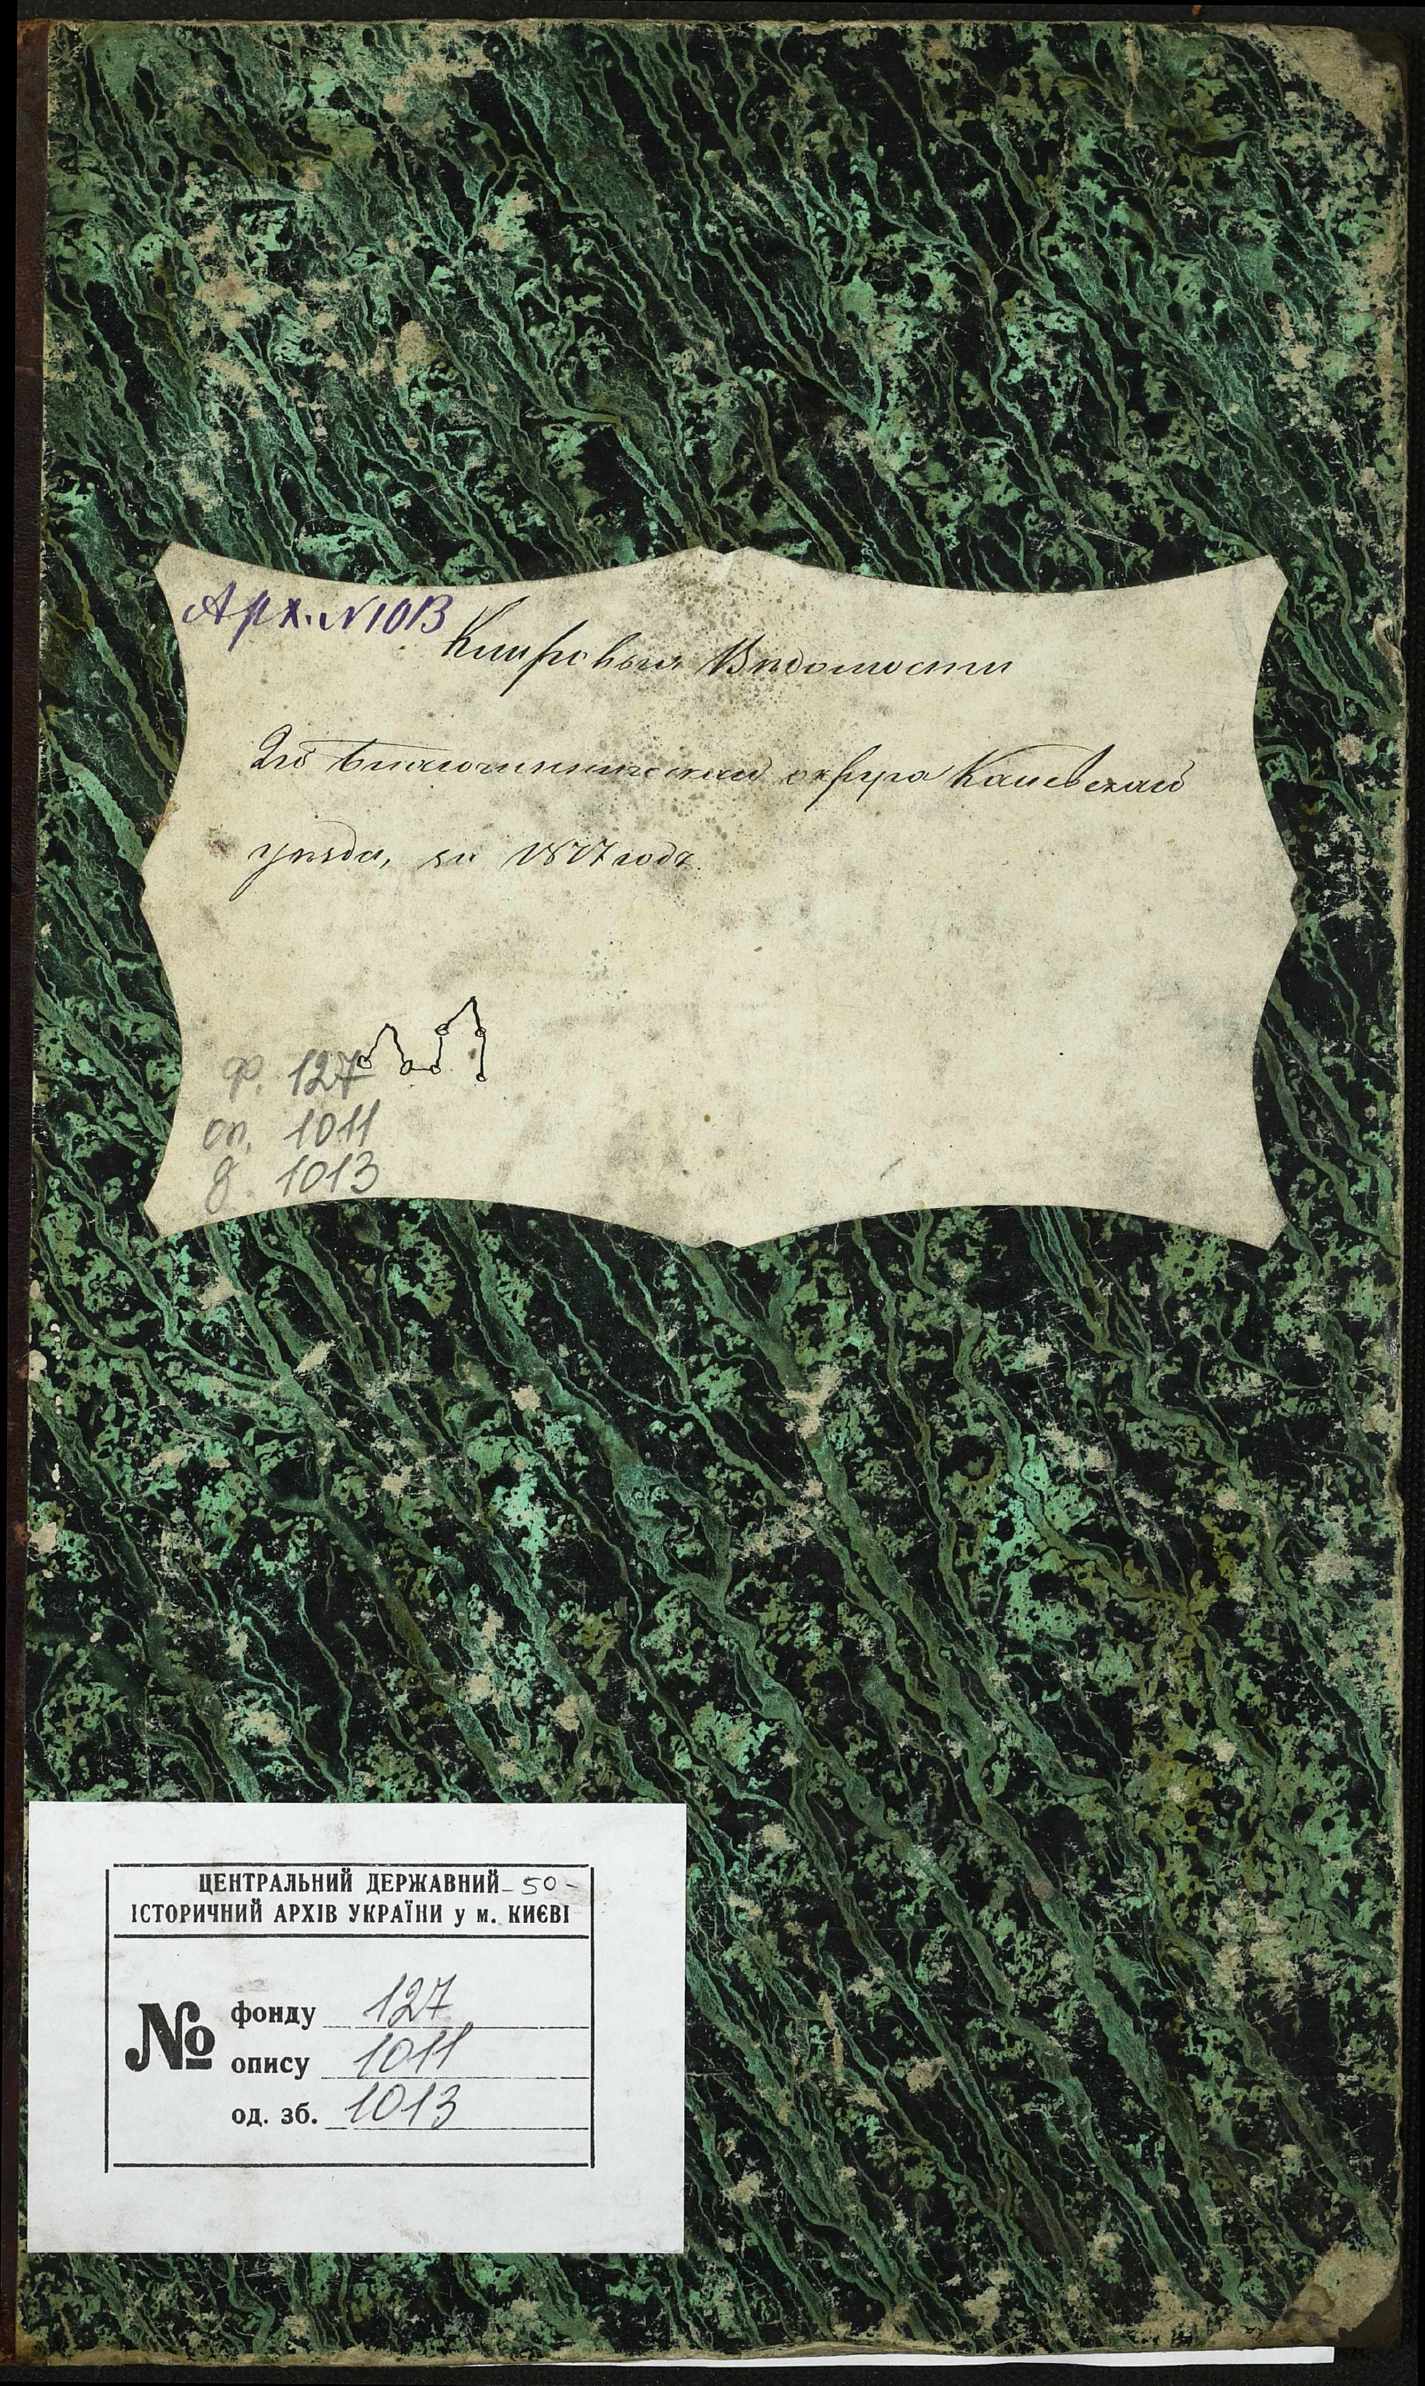 Арх. №1013
Клировыя Вѣдомости
2го Благочинническаго округа Каневскаго
уѣзда, за 1877 годъ.
ф. 127
оп. 1011
д. 1013
ЦЕНТРАЛЬНИЙ ДЕРЖАВНИЙ -50-
ІСТОРИЧНИЙ АРХІВ УКРАЇНИ у м. КИЄВІ
№ фонду 127
опису 1011
од. зб. 1013